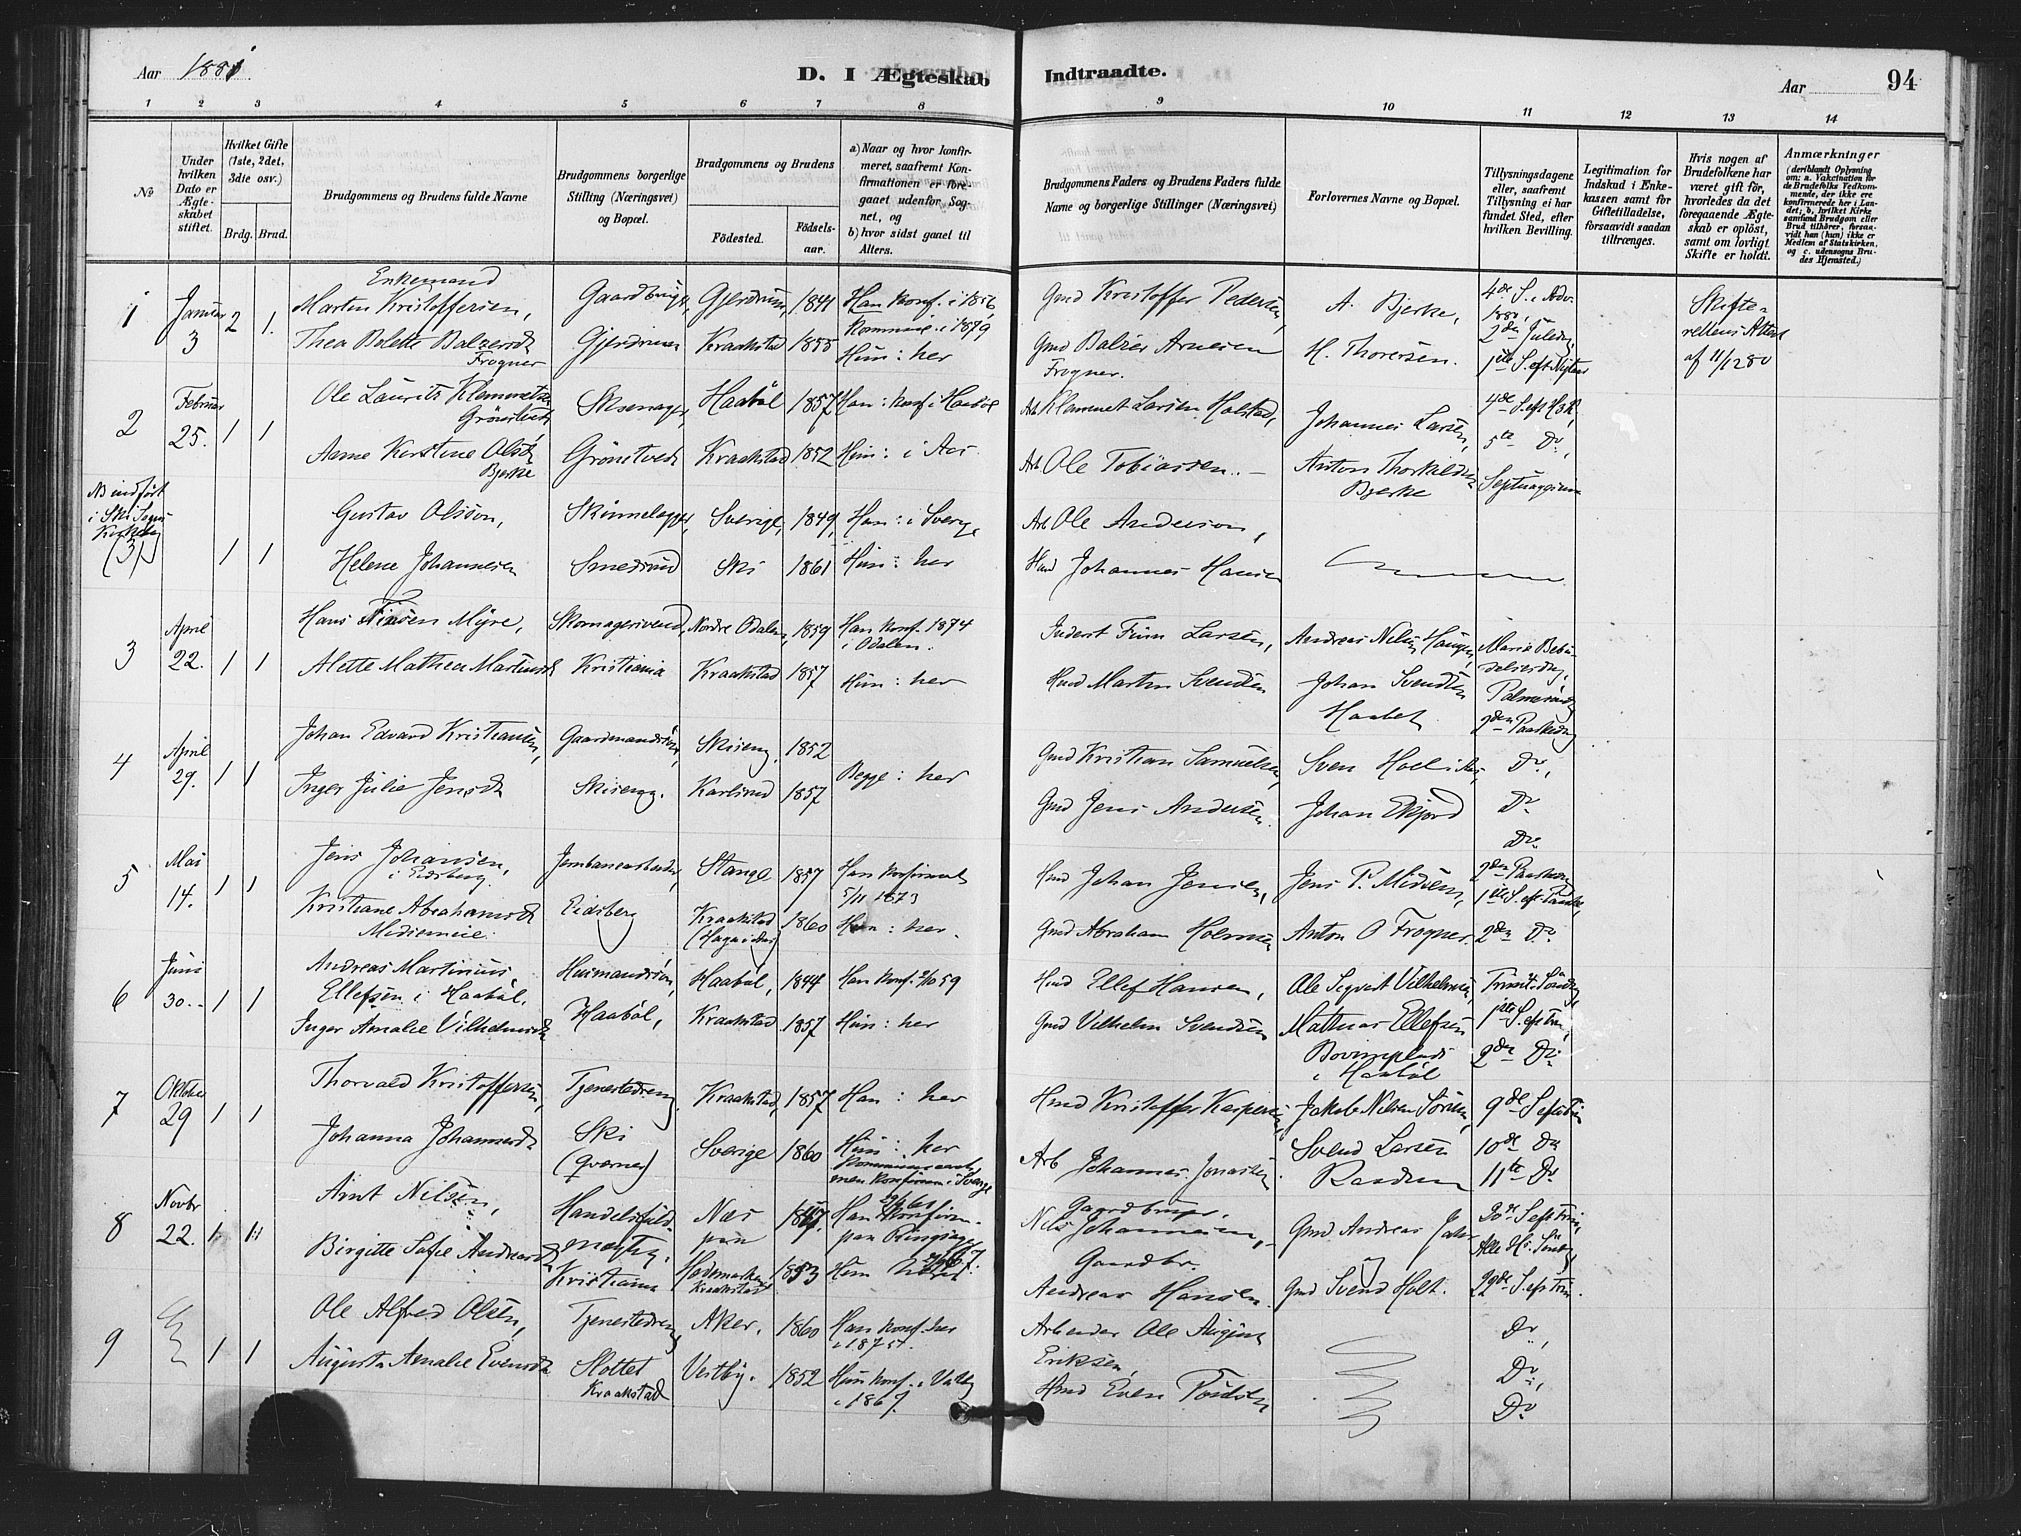 Aar 1881.
D. I Ægteskab Indtraadte.
Aar
94
1 2 3 4 5 6 7 8 9 10 11 12 13 14
No
Under hvilken Dato er Ægteskabet stiftet.
Hvilket Gifte (1ste, 2det, 3die osv.)
Brdg. Brud.
Brudgommens og Brudens fulde Navne
Brudgommens borgerlige Stilling (Næringsvei) og Bopæl.
Brudgommens og Brudens
Fødested.
Fødselsaar.
a) Naar og hvor konfirmeret, saafremt Konfirmationen er foregaaet udenfor Sognet, og
b) hvor sidst gaaet til Alters.
Brudgommens Faders og Brudens Faders fulde Navne og borgerlige Stillinger (Næringsvei)
Forlovernes Navne og Bopæl.
Tillysningsdagene eller, saafremt Tillysning ei har fundet Sted, efter hvilken Bevilling.
Legitimation for Indskud i Enkekassen samt for Giftetilladelse, forsaavidt saadan tiltrænges.
Hvis nogen af Brudefolkene har været gift før, hvorledes da det foregaaende Ægteskab er opløst, samt om lovligt Skifte er holdt.
Anmærkninger (deriblandt Oplysning om: a. Vakcination for de Brudefolks Vedkommende, der ikke ere konfirmerede her i Landet; b. hvilket Kirkesamfund Brudgom eller Brud tilhører, forsaavidt han (hun) ikke er Medlem af Statskirken, og c. udensogns Brudes Hjemsted.)
1 Januar 3 2 1.
Enkemand
Martin Kristoffersen, Gaardbruger, Gjerdrum, 1841 Han konf. i 1856
Kommun. i 1879
Gmd Kristoffer Pedersen, A. Bjerke, 4de S. i Adv. 1880,
Thea Bolette Balzersdr Frogner Gjerdrum Kraakstad 1855 Hun: her
Gmd Balzer Arnesen Frogner. H. Thoresen. 2den Juledag 1ste S. eft Nytaar
Skifterettens Attest af 11/12 80
2 Februar 25. 1 1
Ole Laurits Klemmetsen Grönstvedt Haabøl 1857 Han: konf i Haabøl
Arb Klemmet Larsen Holstad, Johannes Larsen, 4de S. eft H3K,
5te Do,
Anne Kirstine Olsdr Bjerke Grönstvedt Kraakstad 1852 Hun: i Aas
Arb Ole Tobiassen. Anton Thorkildsen Bjerke Septuagesima
NB indført i Ski Sogns Kirkebog (3) 1 1
Gustav Olsson, Sverige, 1849, Han: i Sverge
Arb Ole Anderson,
Helene Johannesen Smedsrud Ski 1861 Hun: her
Hmd Johannes Hansen
3 April 22. 1 1
Hans Finsen Myre, Skomagersvend, Nordre Odalen, 1859 Han konf. 1874 i Odalen.
Inderst Finn Larsen, Andreas Nilsen Haugen, Maria Bebudelsesdag,
Alette Mathea Martinsdr Kristiania Kraakstad 1857 Hun: her
Hmd Martin Svendsen Johan Svendsen Haabet Palmesøndag
2den Paaskedag
4 April 29. 1 1
Johan Edvard Kristiansen, Gaardmandssön, Skiseng, 1852
Begge: her
Gmd Kristian Samuelsen, Sven Hoel i Aas, Do,
Inger Julie Jensdr Skiseng. Karlsrud 1857
Gmd Jens Andersen. Johan Ekjord Do
Do
5 Mai 14. 1 1
Jens Johansen, i Eidsberg. Jernbanearbeider, Stange 1857 Han Konfirmeret 5/11 1873
Hmd Johan Jensen, 2den Paaskedag
1ste S. eft Paaske,
Kristiane Abrahamsdr Eidsberg Kraakstad (Haga i Aas) 1860 Hun: her.
Gmd Abraham Anton O Frogner. 2den Do
6 Juni 30. 1 1
Andreas Martinius Ellefsen i Haabøl. Husmandssön, Haabøl, 1844 Han Konf. 2/10 59
Hmd Ellef Hansen, Ole Sigvart Vilhelmsen, Trinit. Söndag,
Inger Amalie Vilhelmsdr Haabøl, Kraakstad 1857 Hun: her
Gmd Vilhelm Svendsen Mathias Ellefsen i Haabøl 1ste S. eft Trin,
2den Do
7 Oktober 29 1 1
Thorvald Kristoffersen, Tjenestedreng Kraakstad, 1857 Han: her
Hmd Kristoffer Kaspersen, Jakob Nilsen 9de S. eft Trin
Johanna Johannesdr Ski (Qverner) Sverige 1860 Hun: her
konfirm. i Sverige
Arb Johannes Jonassen. Svend Larsen 10de Do
11te Do
8 Novbr 22. 1 1
Arnt Nilsen, Handelsfuldmægtig. Næs paa Hedemarken 1847. Han Konfirm. paa Ringsager
Gaardbruger. Nils Johannesen, Gmd Andreas 20de S. eft Trin,
Alle H. Söndag
Birgitte Sofie Andreasdr Kristiania Kraakstad 1853 Hun
Gaardbr. Andreas Hansen. Gmd Svend Holt. 22de S. eft Trin.
9 1 1
Ole Alfred Olsen, Tjenestedreng Aker. 1860 Han konf. her i 1875.
Arbeider Ole August Eriksen, Do,
Augusta Amalie Evensdr Slottet Kraakstad Vestby. 1852 Hun konf. i Vestby i 1867.
Hmd Even Do,
Do